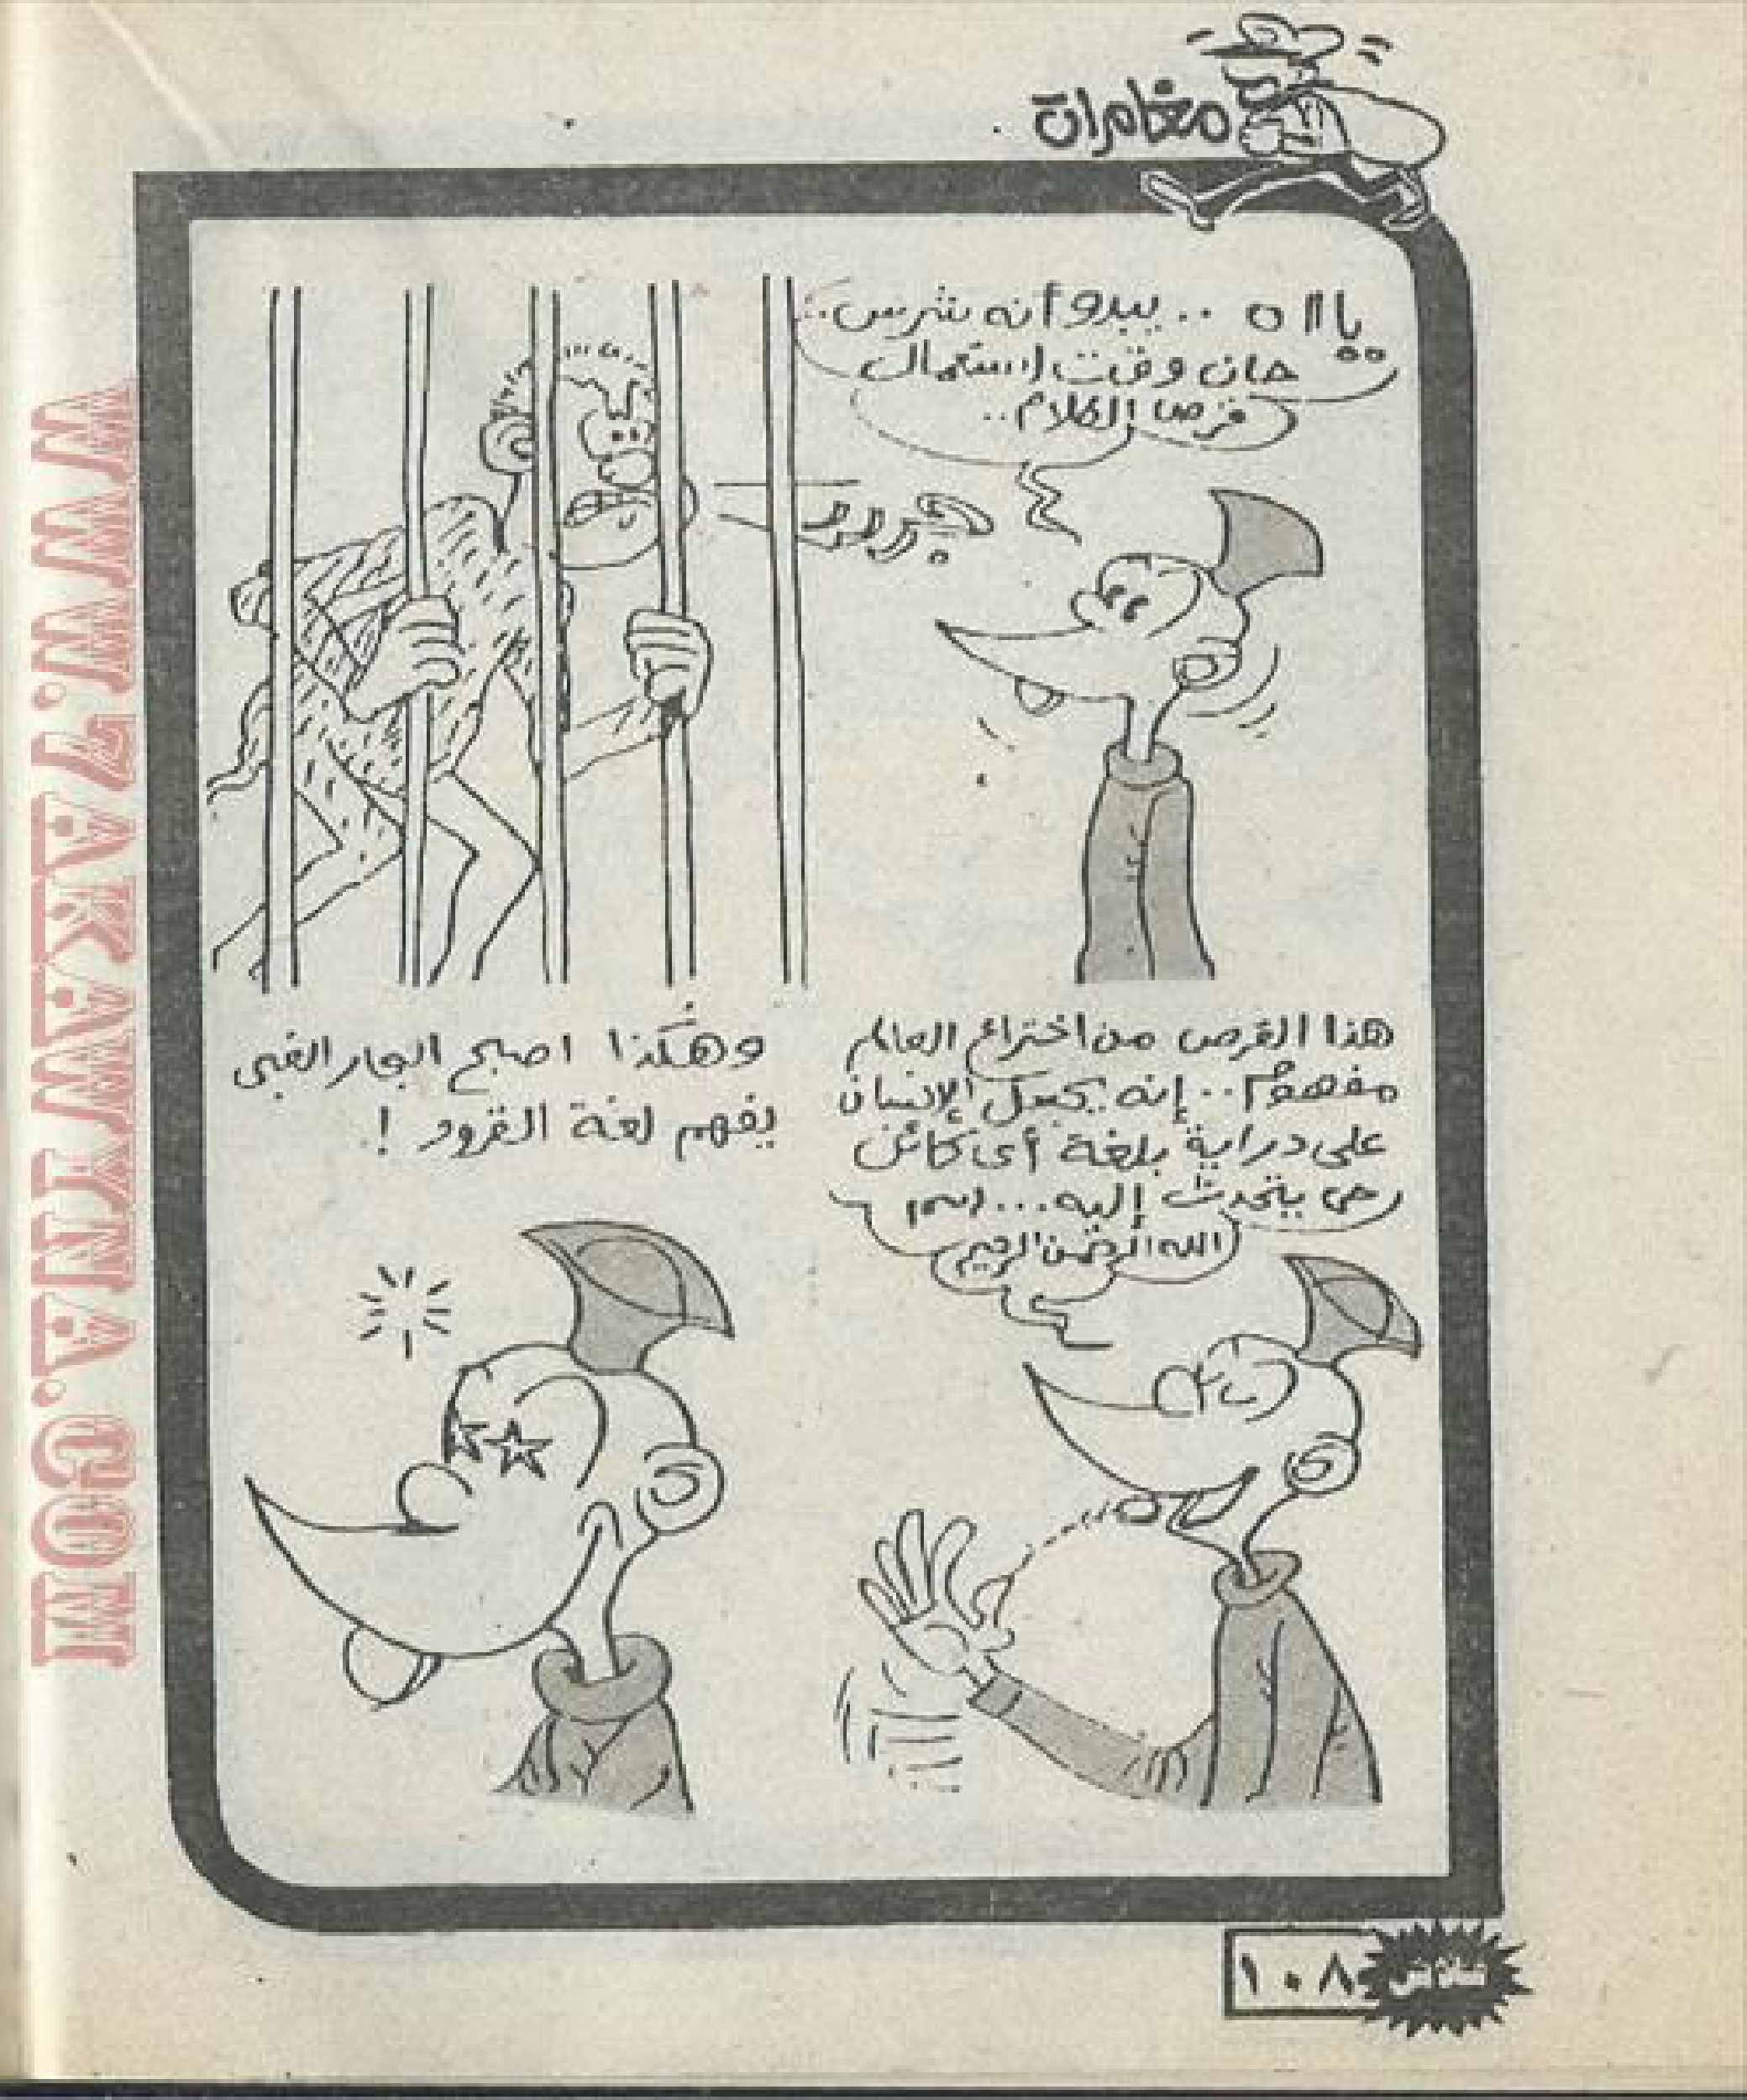 مغامرات
يااا ه .. يبدوا نه شرس ..
حان وقت استعمال
قرص الكلام ..
هذا القرص من اختراع العالم
مفهوم .. إنه يجعل الإنسان
على دراية بلغة أى كائن
حى يتحدث إليه ... بسم
الله الرحمن الرحيم
وهكذا اصبح البحار الغبى
يفهم لغة القرود !
١٠٨
WWW.7AKAWINNA.COM